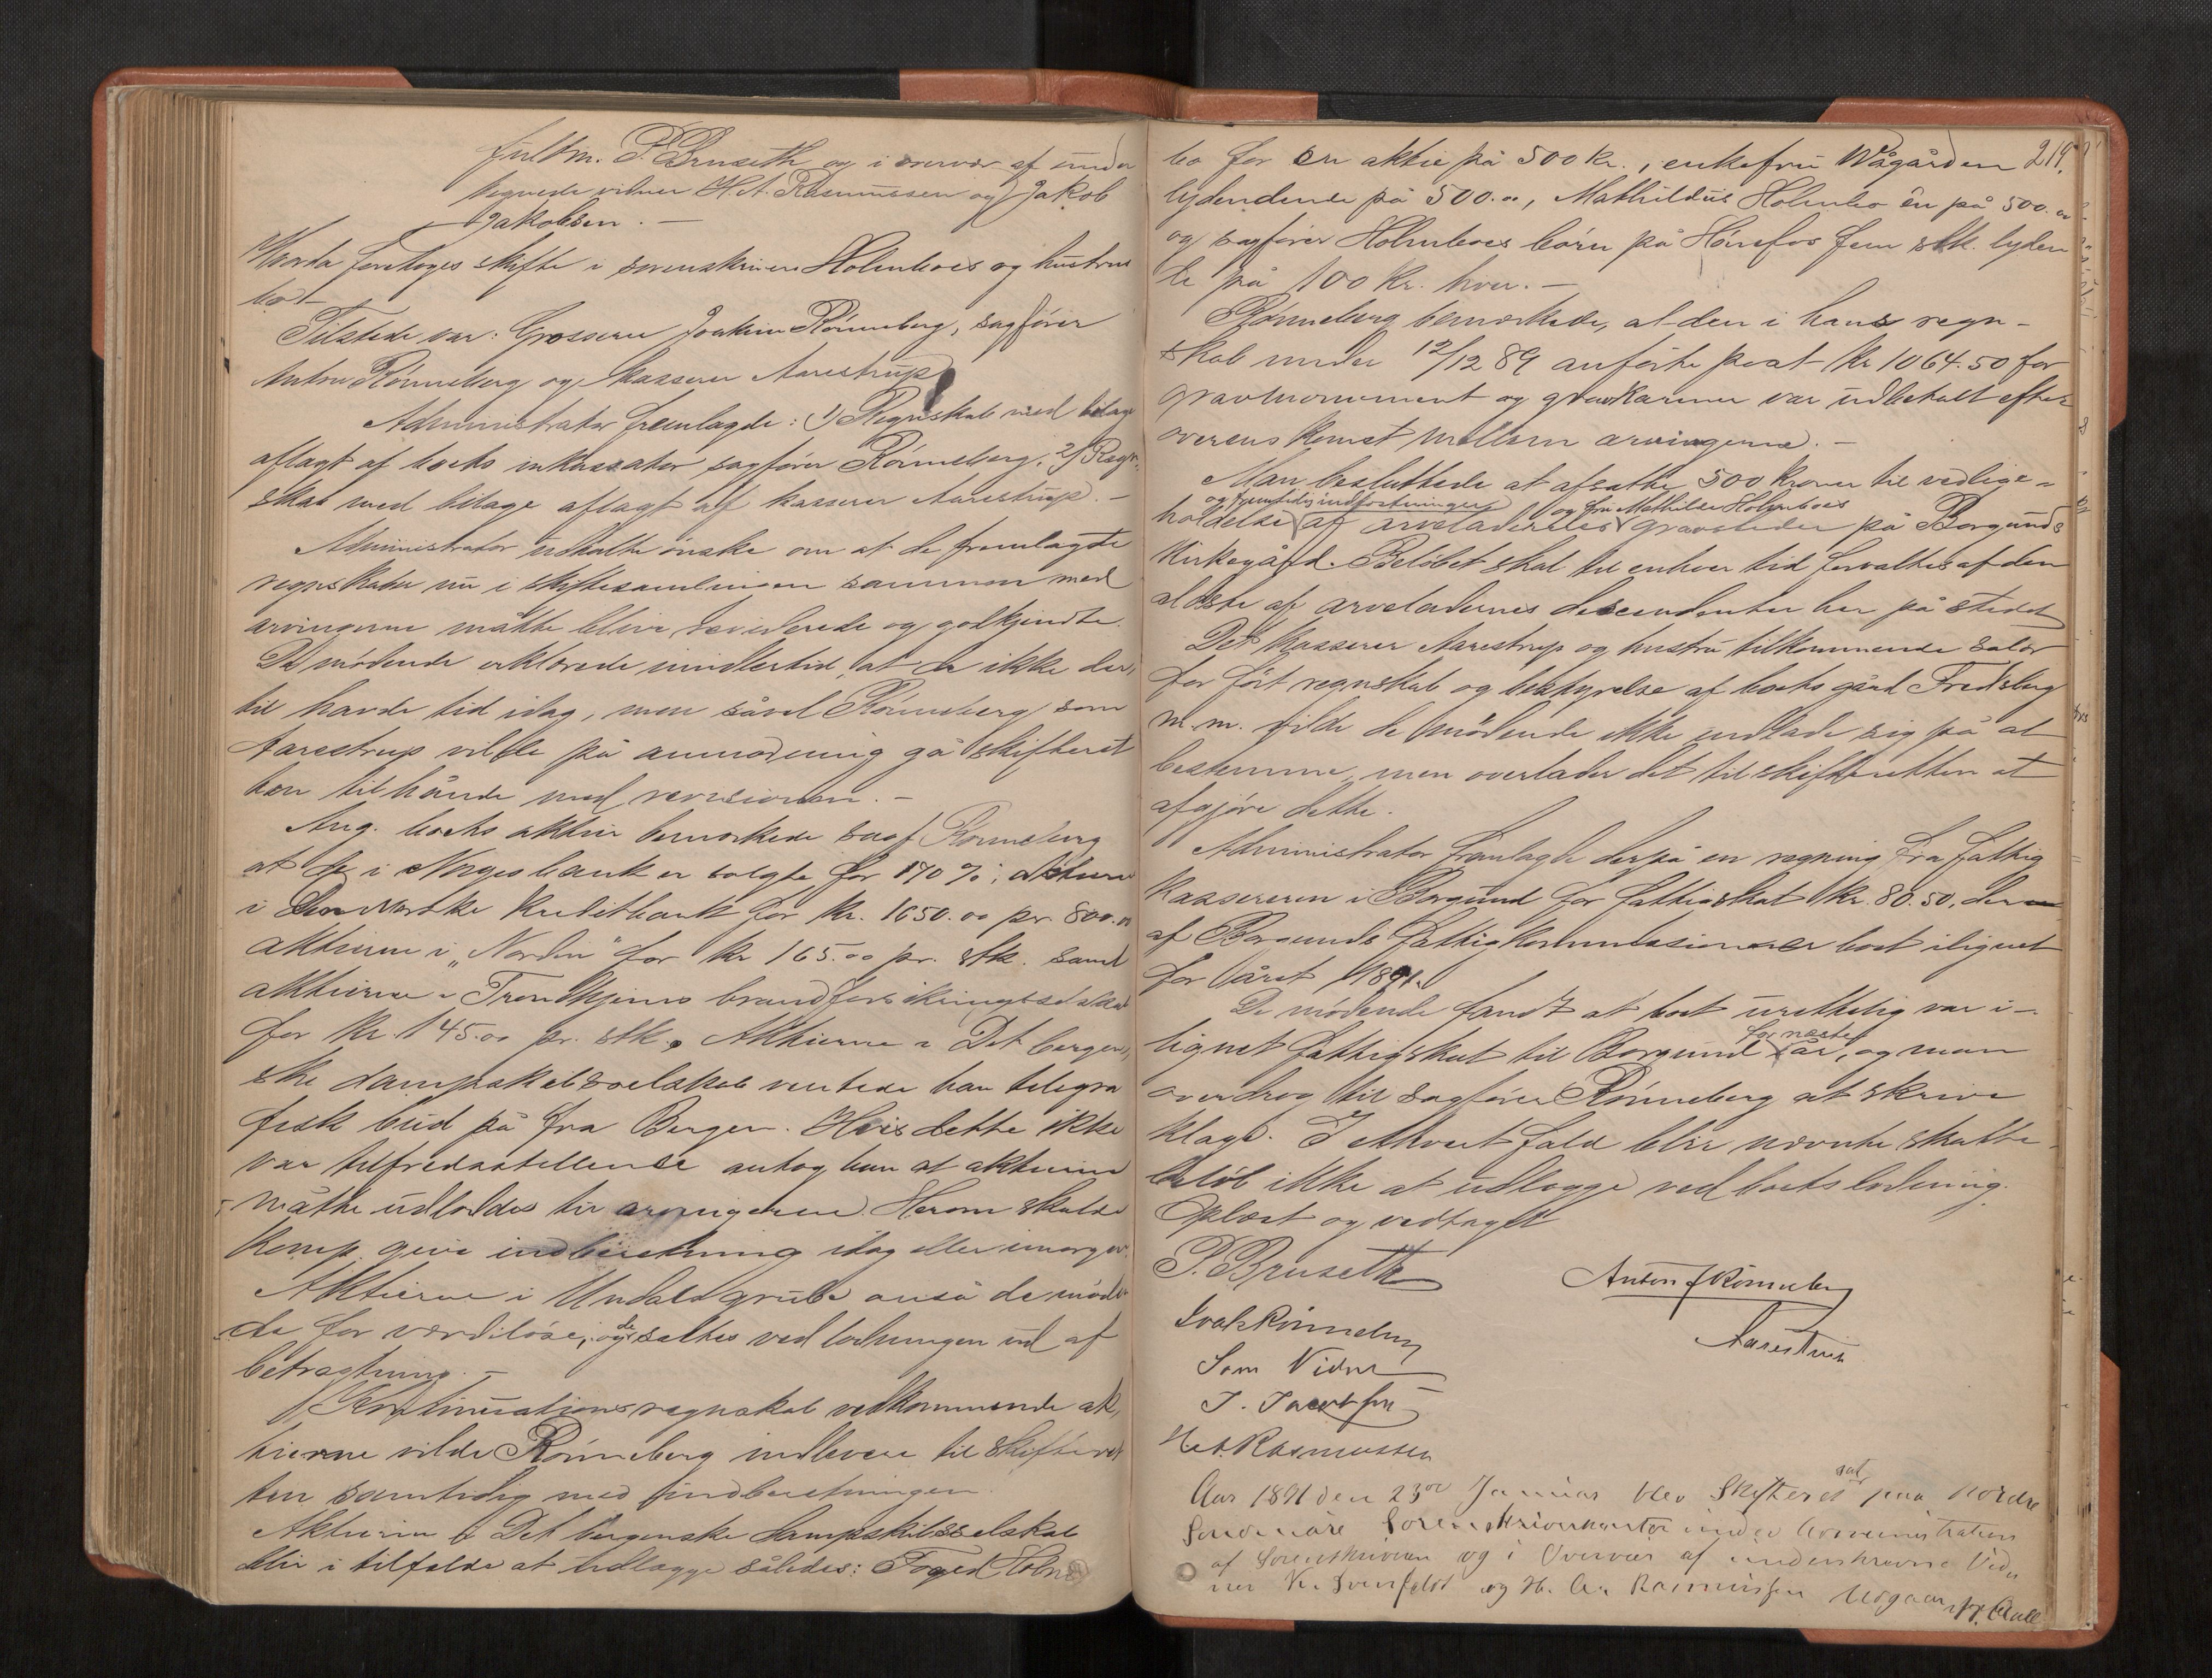 fuldm. P. Bruseth og i overvær af under
tegnede vidner H. A. Rasmussen og Jakob
Jakobsen. —
Hvorda foretoges skifte i sorenskriver Holmboes og hustrus
bo —
Tilstede var: Grosserer Joakim Rönneberg, sagförer
Anton Rönneberg og kasserer Aarestrup.
Administrator fremlagde: 1/ Regnskab med bilage
aflagt af boets inkassator sagförer Rönneberg, 2/ Regn-
skab med bilage aflagt af kasserer Aarestrup. —
Administrator udtalte önske om at de fremlagte
regnskaber nu i skiftesamlingen sammen med
arvingerne måtte blive reviderede og godkjendte.
De mödende erklærede imidlertid, at de ikke der-
til havde tid idag, men såvel Rönneberg som
Aarestrup vilde på anmodning gå skifteret
ten tilhånde med revisionen. —
Ang. boets aktier bemerkede sagf. Rönneberg
at de i Norges bank er solgte for 170 %, aktierne
i Den Norske Kreditbank for kr. 1650.00 pr 800.00
aktierne i „Norden" for kr 165.00 pr. stk. samt
aktierne i Trondhjems brandforsikringsselskab
for kr. 145.00 pr. stk. Aktierne i Det bergen-
ske dampskibsselskab ventede han telegra
fisk bud på fra Bergen. Hvis dette ikke
var tilfredsstillende antog han at aktierne
måtte udloddes til arvingerne. Herom skulde
komp. give indberetning idag eller imorgen.
Aktierne i Undals grube anså de möden
de for værdilöse, og de sattes ved lodningen ud af
betragtning. —
Kontinuationsregnskab vedkommende ak-
tierne vilde Rönneberg indlevere til skifteret
ten samtidig med indberetningen.
Aktierne i Det bergenske dampskibsselskab
blir i tilfælde at udlægge således: Foged Holm-
bo for en aktie på 500 kr., enkefru Wågården 219.
lydendende på 500.00, Mathildus Holmbo én på 500.00
og sagförer Holmboes börn på Hönefos fem stk. lyden
de på 100 kr. hver. —
Rönneberg bemærkede, at den i hans regn-
skab under 12/12 89 anförte post kr 1064.50 for
gravmonument og gravkarme var udbetalt efter
overenskomst mellem arvingerne. —
Man besluttede at afsætte 500 kroner til vedlige-
og fremtidig indfæstninger og fru Mathilde Holmboes
holdelse af arveladernes gravsteder på Borgunds
kirkegård. Belöbet skal til enhver tid forvaltes af den
ældste af arveladernes descendenter her på stedet
Det kasserer Aarestrup og hustru tilkommende salær
for fört regnskab og bestyrelse af boets gård Fredsberg
m. m. vilde de mödende ikke indlade sig på at
bestemme, men overlader det til skifteretten at
afgjöre dette.
Administrator fremlagde derpå en regning fra fattig
kassereren i Borgund for fattigskat kr. 80.50, der
af Borgunds fattigkommission er boet ilignet
for året 1891.
De mödende fandt at boet urettelig var i-
for næste
lignet fattigskat til Borgund år, og man
overdrog til sagförer Rönneberg at skrive
klage. I ethvert fald blir nævnte skatte-
belöb ikke at udlægge ved boets lodning.
Oplæst og vedtaget
P. Bruseth
Anton J Rönneberg
Joak Rönneberg
Aarestrup
Som Vidner
J. Jacobsen
H. A. Rasmussen
Aar 1891 den 23de Januar blev Skifteret sat paa Nordre
Söndmöre Sorenskriverkontor under Administration
af Sorenskriveren og i Overvær af underskrevne Vid-
ner K. Svenfeldt og H. A. Rasmussen